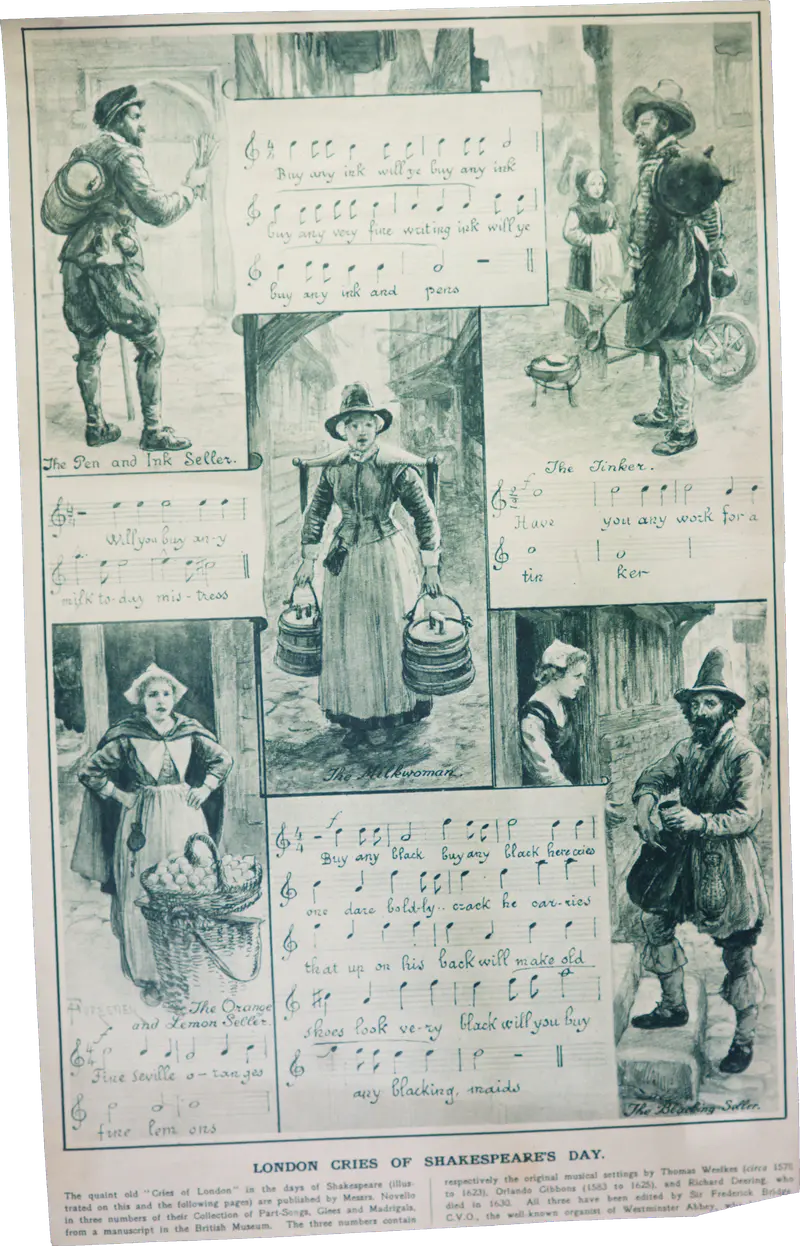 Buy any ink will ye buy any ink
buy any very fine writing ink will ye
buy any ink and pens
The Pen and Ink Seller.
The Tinker.
Have you any work for a
tin ker
Will you buy an-y
milk to-day mis-tress
The Milkwoman.
The Orange
and Lemon Seller.
Fine Seville o-ranges
fine lem ons
Buy any black buy any black here cries
one dare bold-ly.. crack he car-ries
that up on his back will make old
shoes look ve-ry black will you buy
any blacking, maids
The Blacking-Seller.
LONDON CRIES OF SHAKESPEARE'S DAY.
The quaint old "Cries of London" in the days of Shakespeare (illus-
trated on this and the following pages) are published by Messrs. Novello
in three numbers of their Collection of Part-Songs, Glees and Madrigals,
from a manuscript in the British Museum. The three numbers contain
respectively the original musical settings by Thomas Weelkes (circa 1575
to 1623), Orlando Gibbons (1583 to 1625), and Richard Deering, who
died in 1630. All three have been edited by Sir Frederick Bridge
C.V.O., the well-known organist of Westminster Abbey,